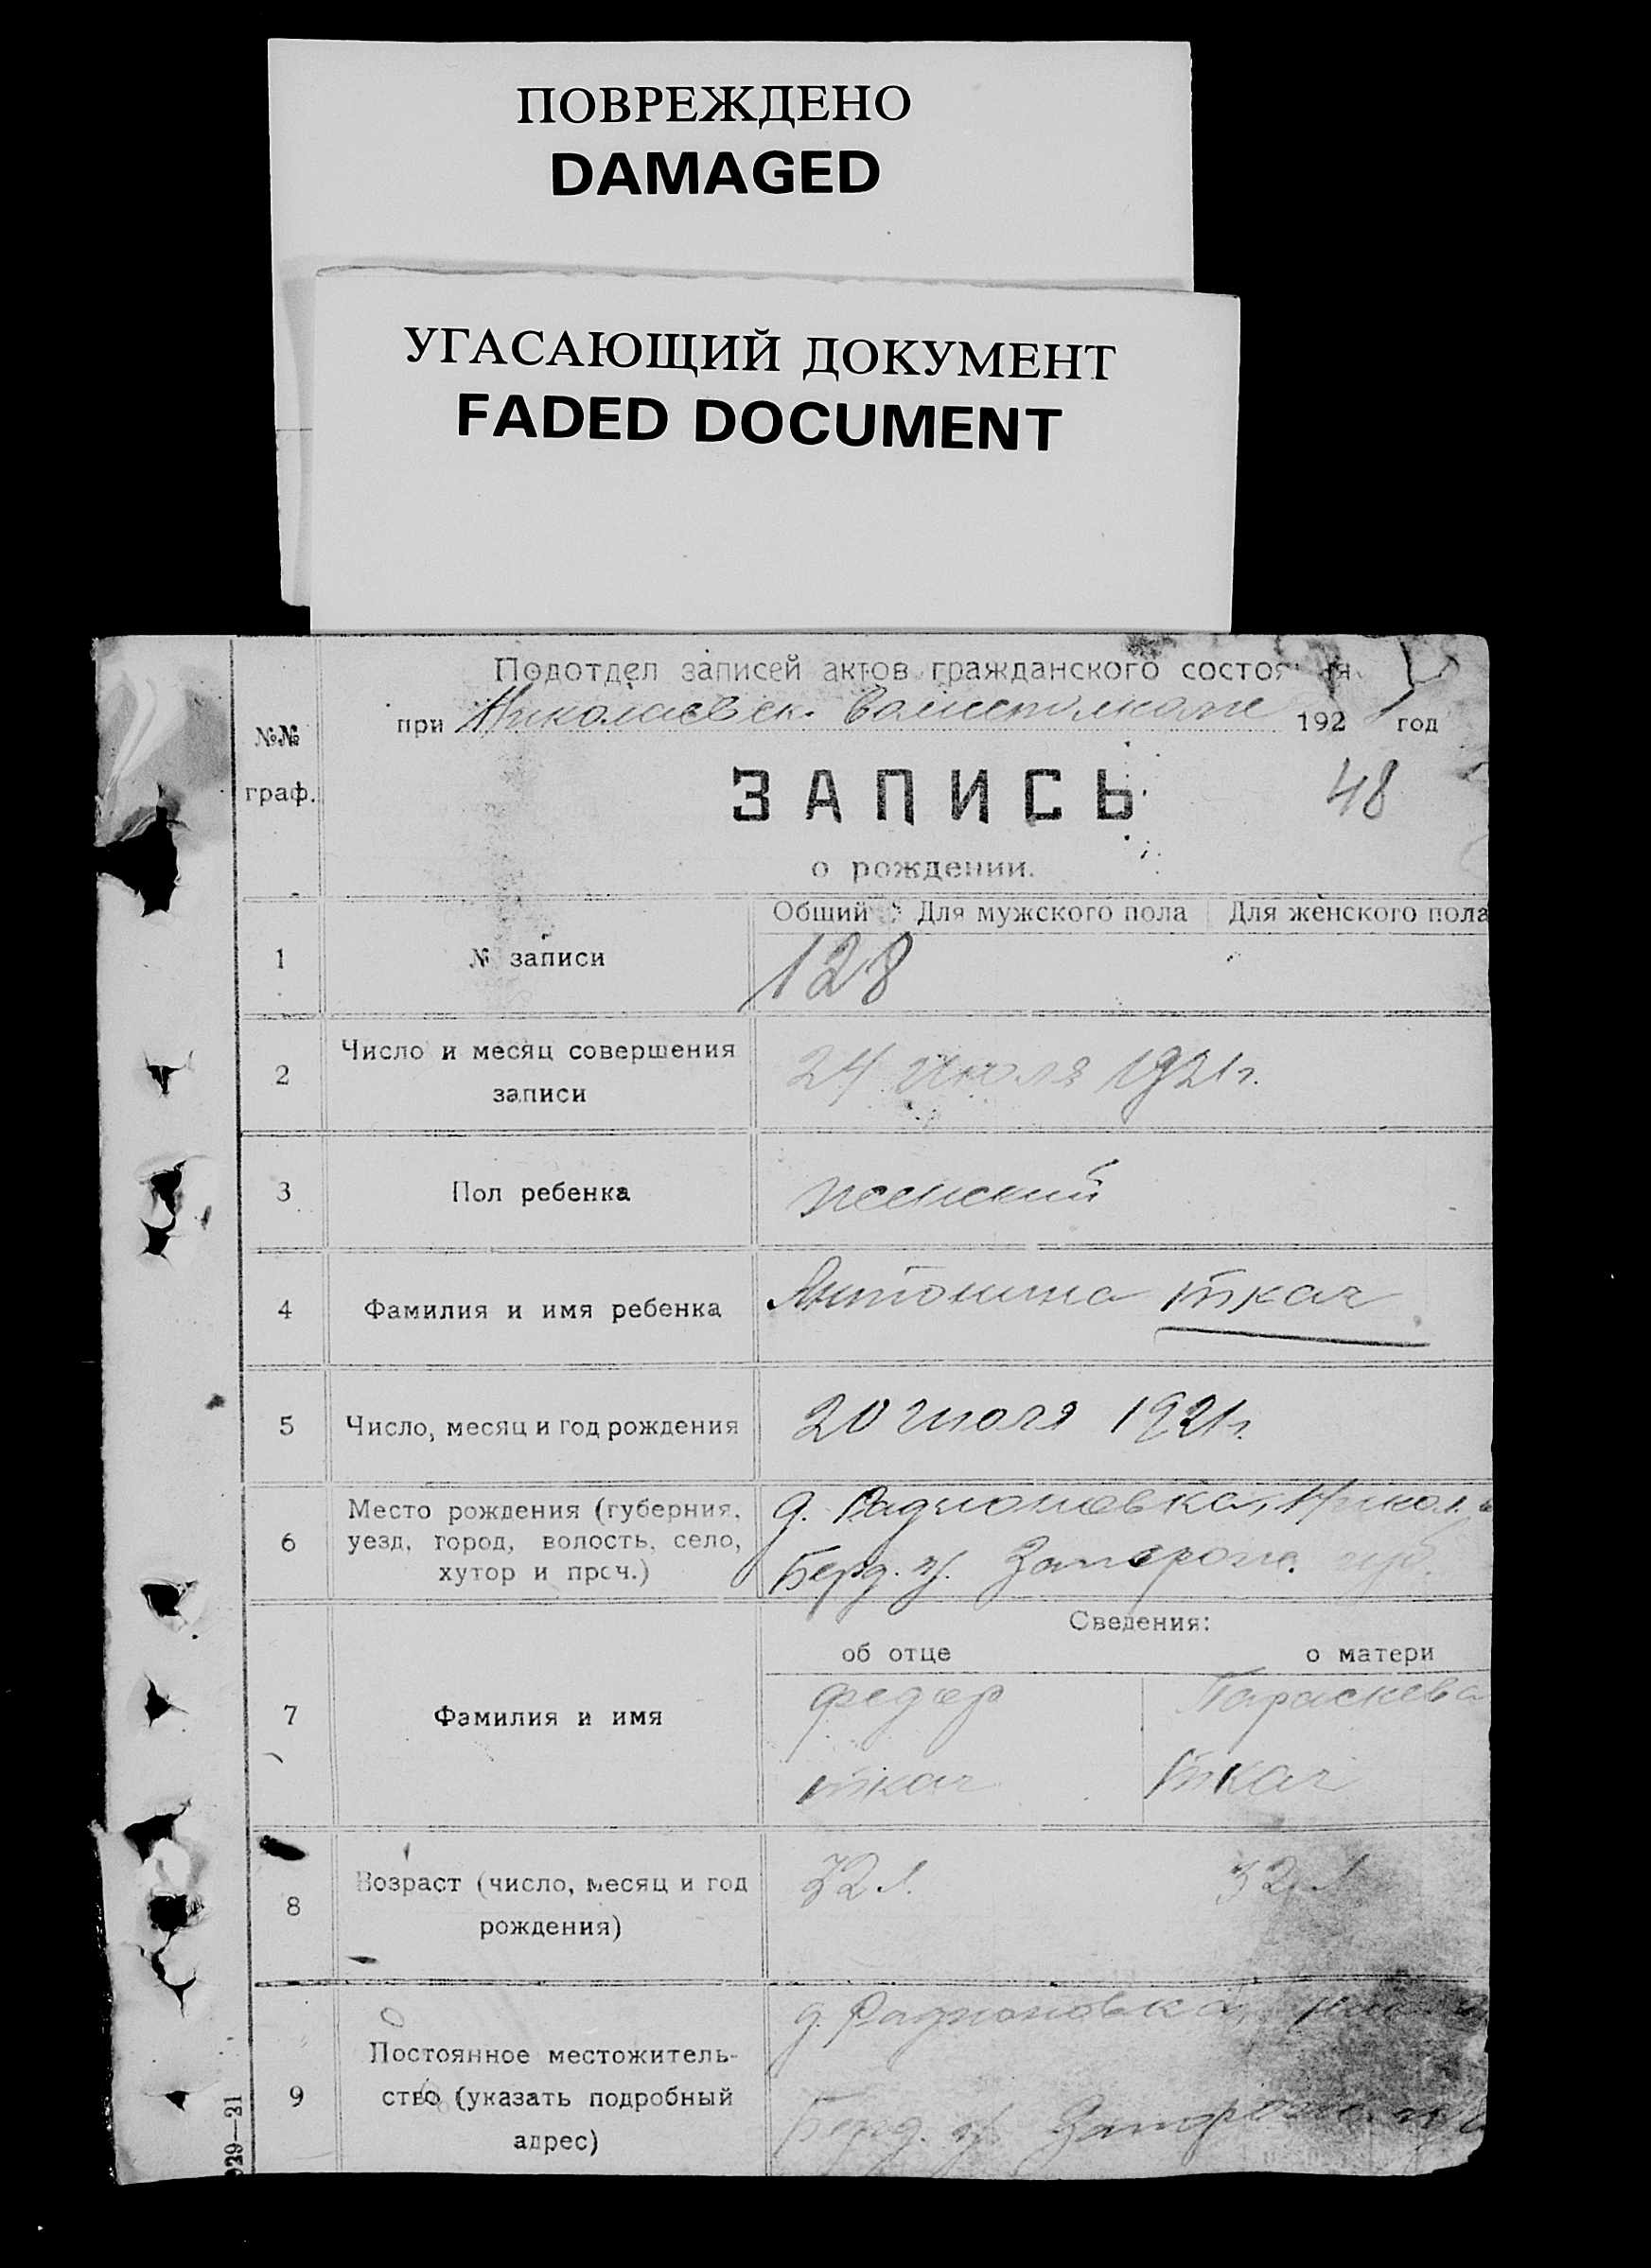 ПОВРЕЖДЕНО
DAMAGED
УГАСАЮЩИЙ ДОКУМЕНТ
FADED DOCUMENT
Подотдел записей актов гражданского
при Николаевск. 192 год
№№
граф.
ЗАПИСЬ
48
о рождении.
Общий Для мужского пола Для женского пола
1 № записи 128
2 Число и месяц совершения
записи
24 июля 1921 г.
3 Пол ребенка женский
4 Фамилия и имя ребенка Антонина Ткач
5 Число, месяц и год рождения 20 июля 1921 г.
6 Место рождения (губерния,
уезд, город, волость, село,
хутор и проч.)
д. Радионовка, Никол.
Берд. у. Запорож. губ.
Сведения:
об отце о матери
7 Фамилия и имя
Федор Параскева
Ткач Ткач
8 Возраст (число, месяц и год
рождения)
32 л. 32 л
9 Постоянное местожитель-
ство (указать подробный
адрес)
д. Радионовка,
Берд. у. Запорож.